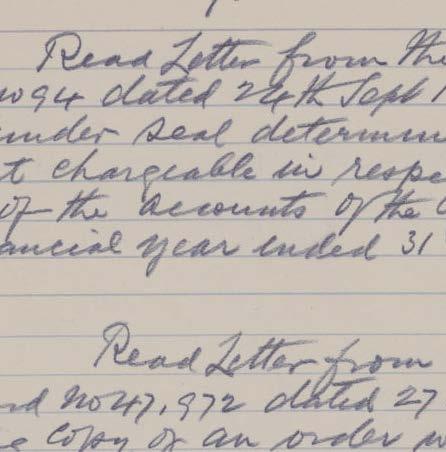 Read Letter from the
no 94 dated 24th Sept 1
under seal determin
t chargeable in respe
of the accounts of the
ancial year ended 31
Read Letter from
rd No 47,972 dated 27
g copy of an order